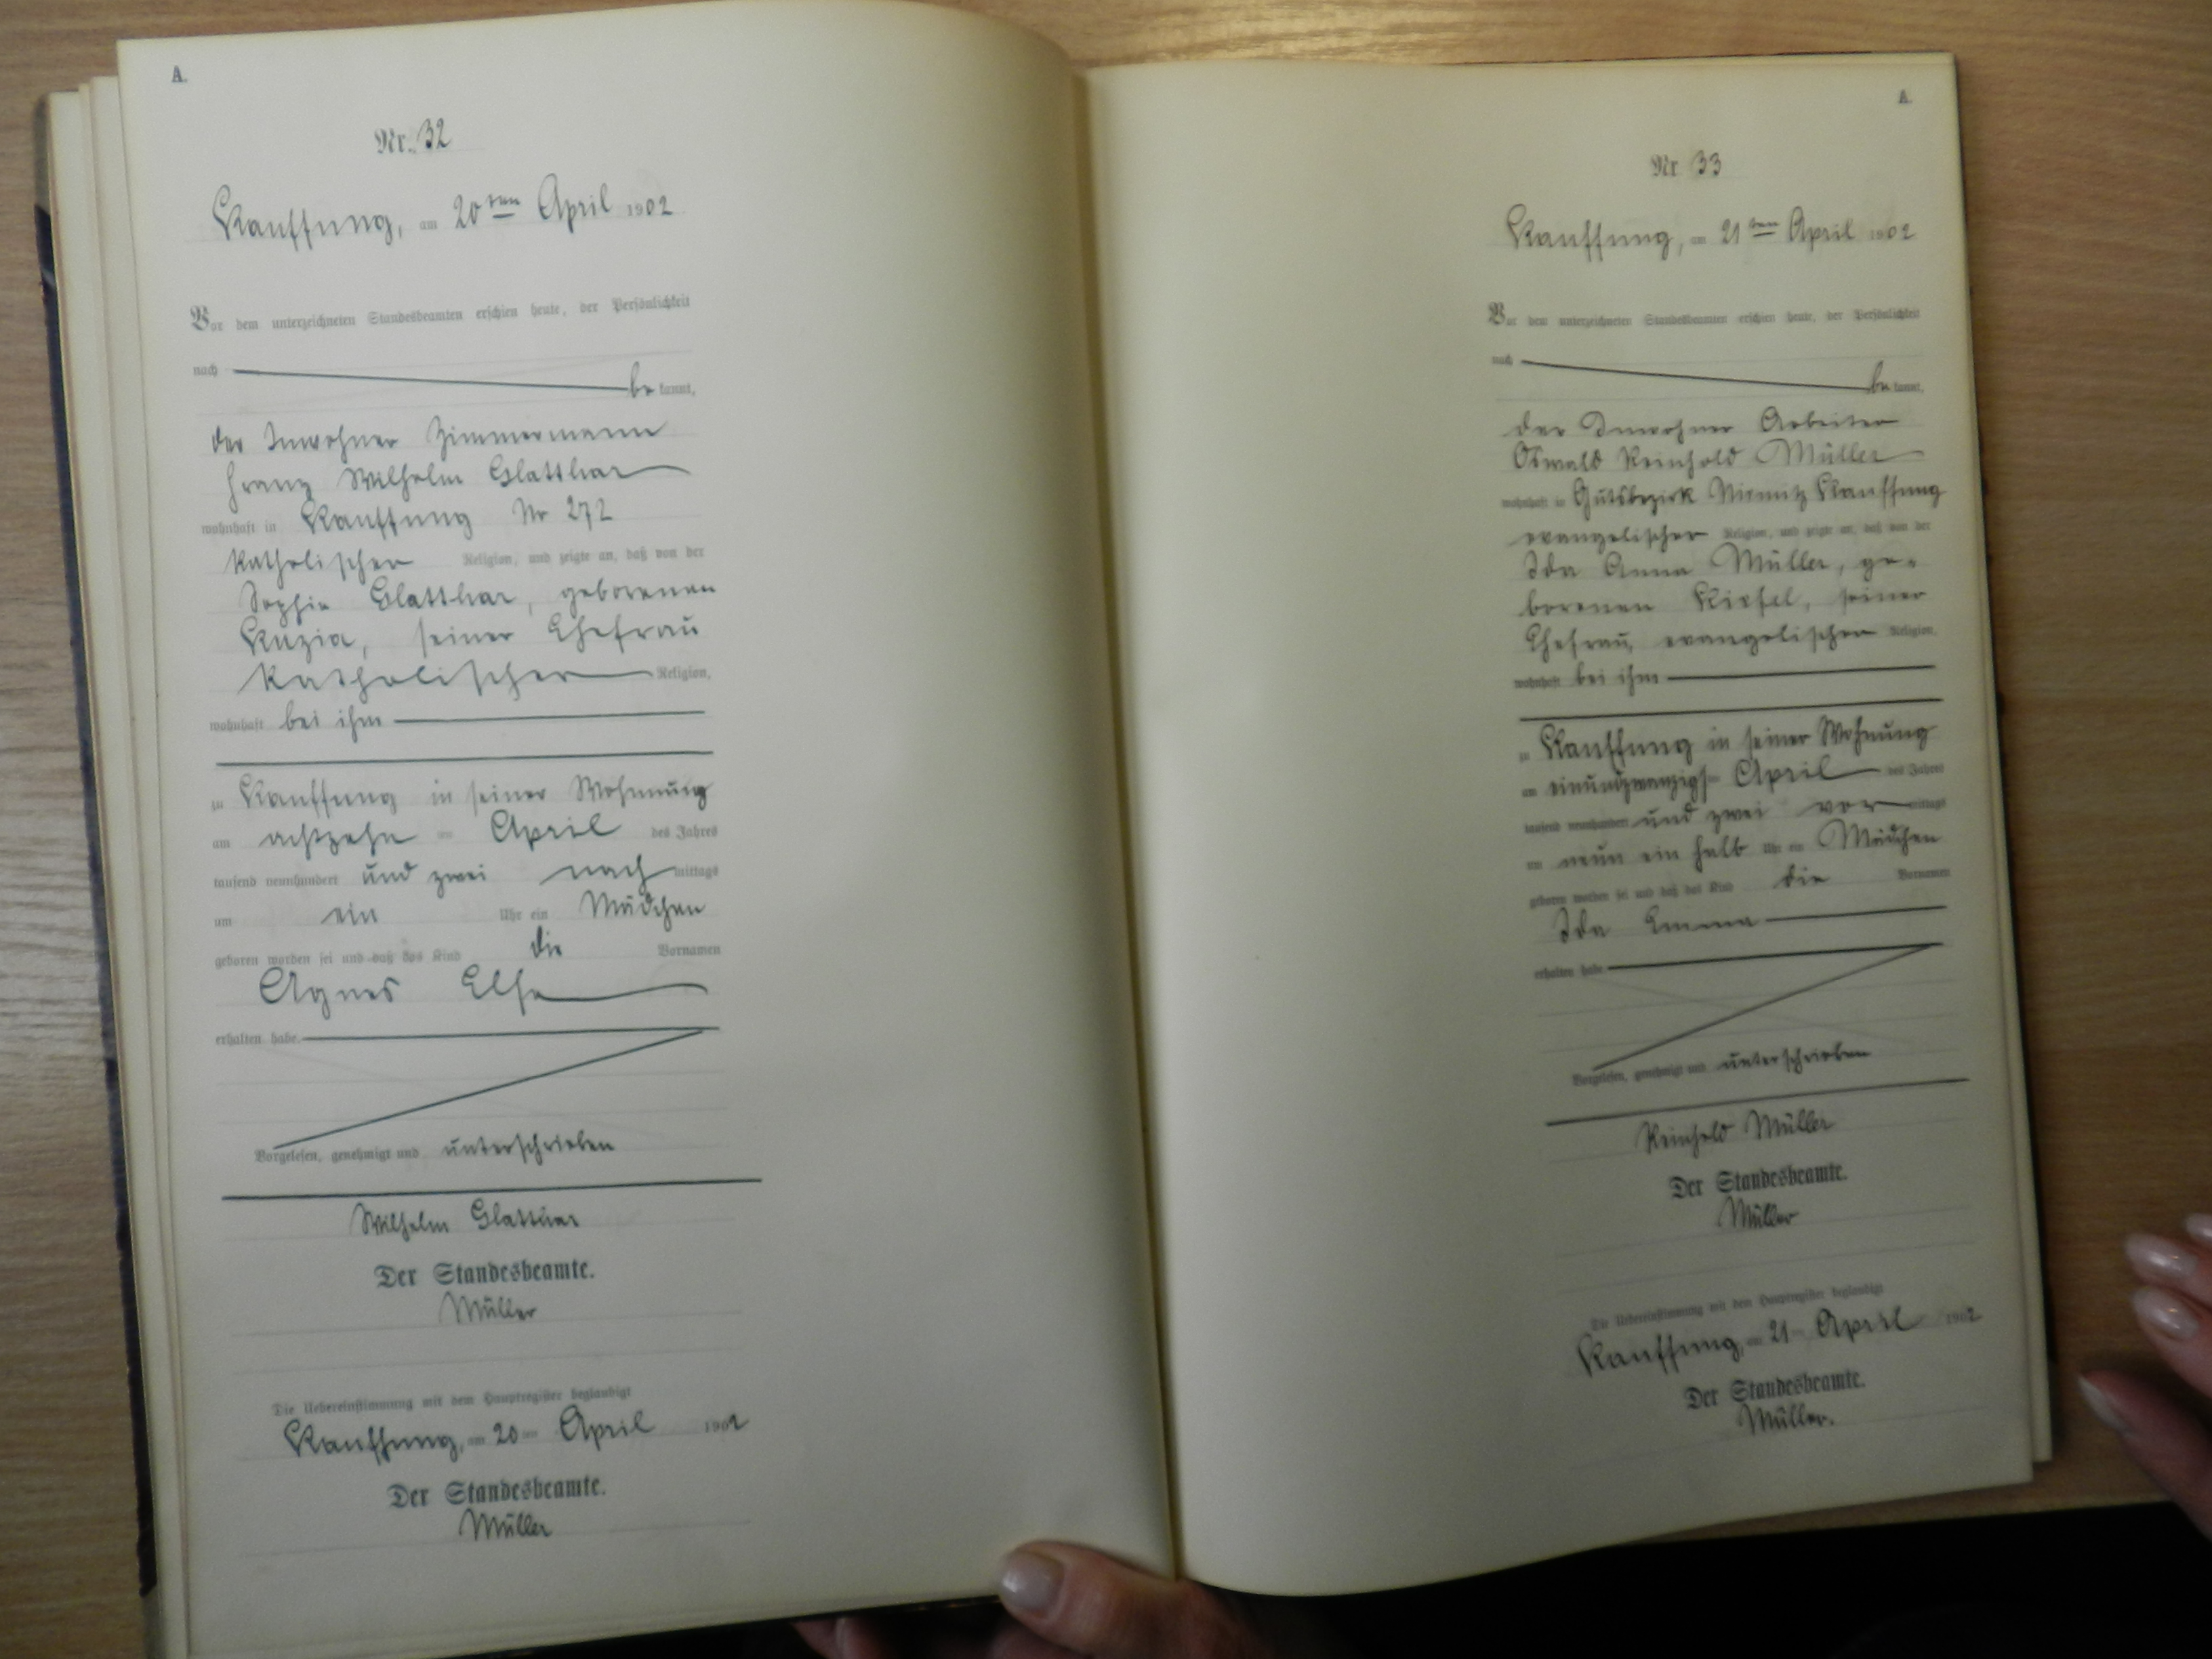 A.
Nr. 32
Kauffung, am 20ten April 1902
Vor dem unterzeichneten Standesbeamten erschien heute, der Persönlichkeit
nach be kannt,
der Inwohner Zimmermann
Franz Wilhelm Glatthar
wohnhaft in Kauffung Nr 272
katholischer Religion, und zeigte an, daß von der
Sophie Glatthar, geborenen
seiner Ehefrau
katholischer Religion,
wohnhaft bei ihm
zu Kauffung in seiner Wohnung
am achtzehn ten April des Jahres
tausend neunhundert und zwei nach mittags
um ein Uhr ein Mädchen
geboren worden sei und daß das Kind die Vornamen
Agnes Else
erhalten habe.
Vorgelesen, genehmigt und unterschrieben
Wilhelm Glatthar
Der Standesbeamte.
Müller
Die Uebereinstimmung mit dem Hauptregister beglaubigt
Kauffung, am 20 ten April 1902
Der Standesbeamte.
Müller
A.
Nr 33
Kauffung, am 21ten April 1902
Vor dem unterzeichneten Standesbeamten erschien heute, der Persönlichkeit
nach be kannt,
der Inwohner Arbeiter
Oswald Reinhold Müller
wohnhaft in Gutsbezirk Niemitz Kauffung
evangelischer Religion, und zeigte an, daß von der
Ida Anna Müller, ge-
borenen seiner
Ehefrau, evangelischer Religion,
wohnhaft bei ihm
zu Kauffung in seiner Wohnung
am einundzwanzigsten April des Jahres
tausend neunhundert und zwei vor mittags
um neun ein halb Uhr ein Mädchen
geboren worden sei und daß das Kind die Vornamen
Ida Emma
erhalten habe
Vorgelesen, genehmigt und unterschrieben
Reinhold Müller
Der Standesbeamte.
Müller
Die Uebereinstimmung mit dem Hauptregister beglaubigt
Kauffung, am 21 ten April 1902
Der Standesbeamte.
Müller.